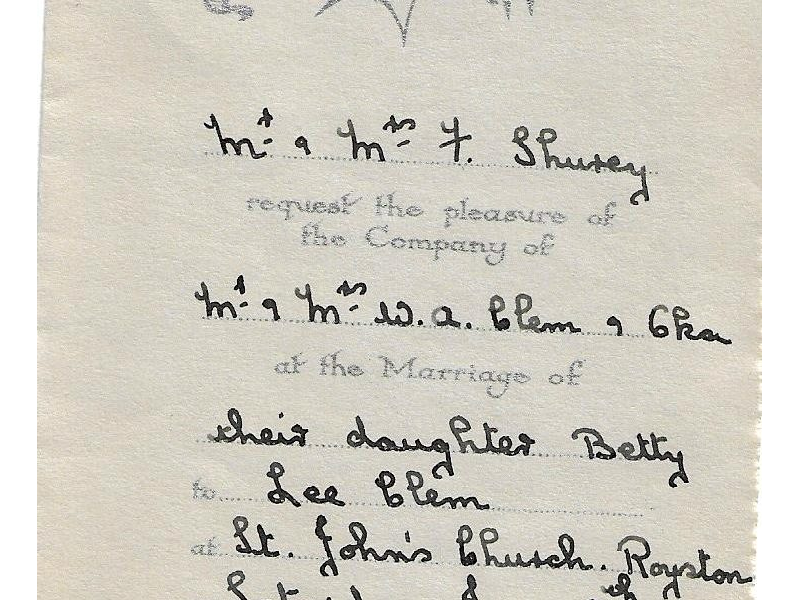 Mr & Mrs F. Shurey
request the pleasure of
the Company of
Mr & Mrs W. A. Clem &
at the Marriage of
their daughter Betty
to Lee Clem
at St. John's Church. Royston